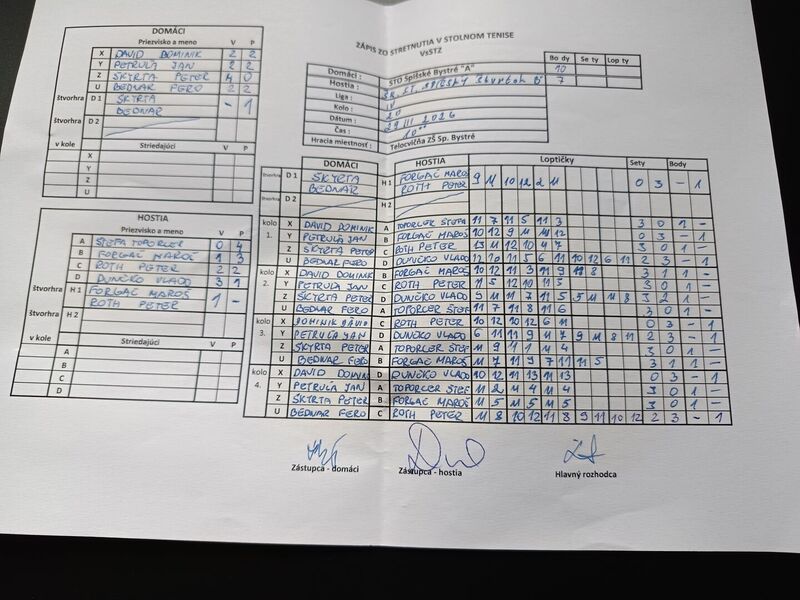 ZÁPIS ZO STRETNUTIA V STOLNOM TENISE
VsSTZ
DOMÁCI
Priezvisko a meno V P
X DAVID DOMINIK 2 2
Y PETRUĽA JAN 2 2
Z ŠKYRTA PETER 4 0
U BEDNAR FERO 2 2
štvorhra D 1 ŠKYRTA - 1
BEDNAR
štvorhra D 2
v kole Striedajúci V P
X
Y
Z
U
Domáci : STO Spišské Bystré "A"
Hostia :
Liga : IV
Kolo : 20
Dátum : 29 III 2026
Čas : 10°°
Hracia miestnosť : Telocvičňa ZŠ Sp. Bystré
Bo dy Se ty Lop ty
10
7
HOSTIA
Priezvisko a meno V P
A ŠTEFA TOPORCER 0 4
B FORGAČ MAROŠ 1 3
C ROTH PETER 2 2
D DUNČKO VLADO 3 1
štvorhra H 1 FORGAČ MAROŠ 1 -
ROTH PETER
štvorhra H 2
v kole Striedajúci V P
A
B
C
D
DOMÁCI HOSTIA Loptičky Sety Body
štvorhra D 1 ŠKYRTA BEDNAR H 1 FORGAČ MAROŠ ROTH PETER 9 11 10 12 2 11 0 3 - 1
štvorhra D 2 H 2
kolo 1. X DAVID DOMINIK A TOPORCER ŠTEFA 11 7 11 5 11 3 3 0 1 -
Y PETRUĽA JAN B FORGAČ MAROŠ 10 12 9 11 10 12 0 3 - 1
Z ŠKYRTA PETER C ROTH PETER 13 11 12 10 4 7 3 0 1 -
U BEDNAR FERO D DUNČKO VLADO 12 10 11 5 6 11 10 12 6 11 2 3 - 1
kolo 2. X DAVID DOMINIK B FORGAČ MAROŠ 10 12 11 3 11 9 11 8 3 1 1 -
Y PETRUĽA JAN C ROTH PETER 11 5 12 10 11 5 3 0 1 -
Z ŠKYRTA PETER D DUNČKO VLADO 9 11 11 7 11 5 5 11 11 8 3 2 1 -
U BEDNAR FERO A TOPORCER ŠTEF 11 7 11 8 11 6 3 0 1 -
kolo 3. X DOMINIK DÁVID C ROTH PETER 10 12 10 12 6 11 0 3 - 1
Y PETRUĽA JAN D DUNČKO VLADO 6 11 11 9 11 7 9 11 8 11 2 3 - 1
Z ŠKYRTA PETER A TOPORCER ŠTEF 11 9 11 1 11 4 3 0 1 -
U BEDNAR FERO B FORGAČ MAROŠ 11 7 11 9 7 11 11 5 3 1 1 -
kolo 4. X DAVID DOMINIK D DUNČKO VLADO 10 12 11 13 11 13 0 3 - 1
Y PETRUĽA JAN A TOPORCER ŠTEF 11 2 11 4 11 4 3 0 1 -
Z ŠKYRTA PETER B FORGAČ MAROŠ 11 5 11 5 11 5 3 0 1 -
U BEDNAR FERO C ROTH PETER 11 8 10 12 11 8 9 11 10 12 2 3 - 1
Zástupca - domáci Zástupca - hostia Hlavný rozhodca